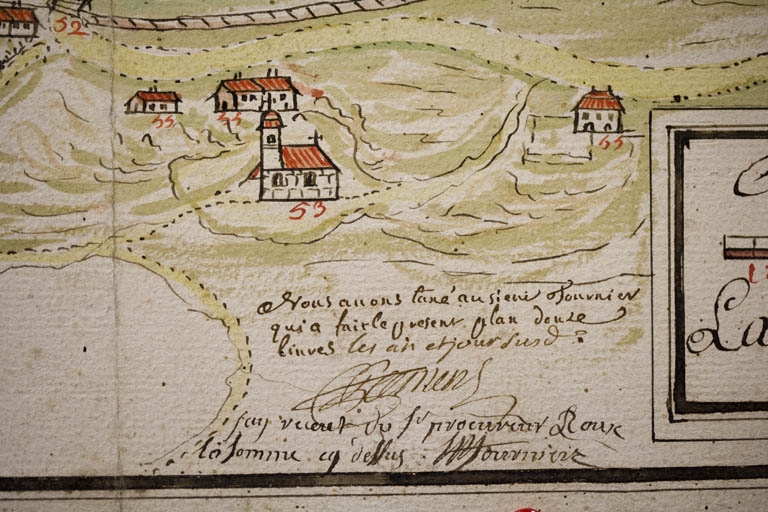 52
55
55
55
53
Nous avons taxé au sieur Fournier
qui a fait le present plan douze
livres les an et jour susd.
J'ay receut du Sr procureur Roux
la somme cy dessus Fournier
La